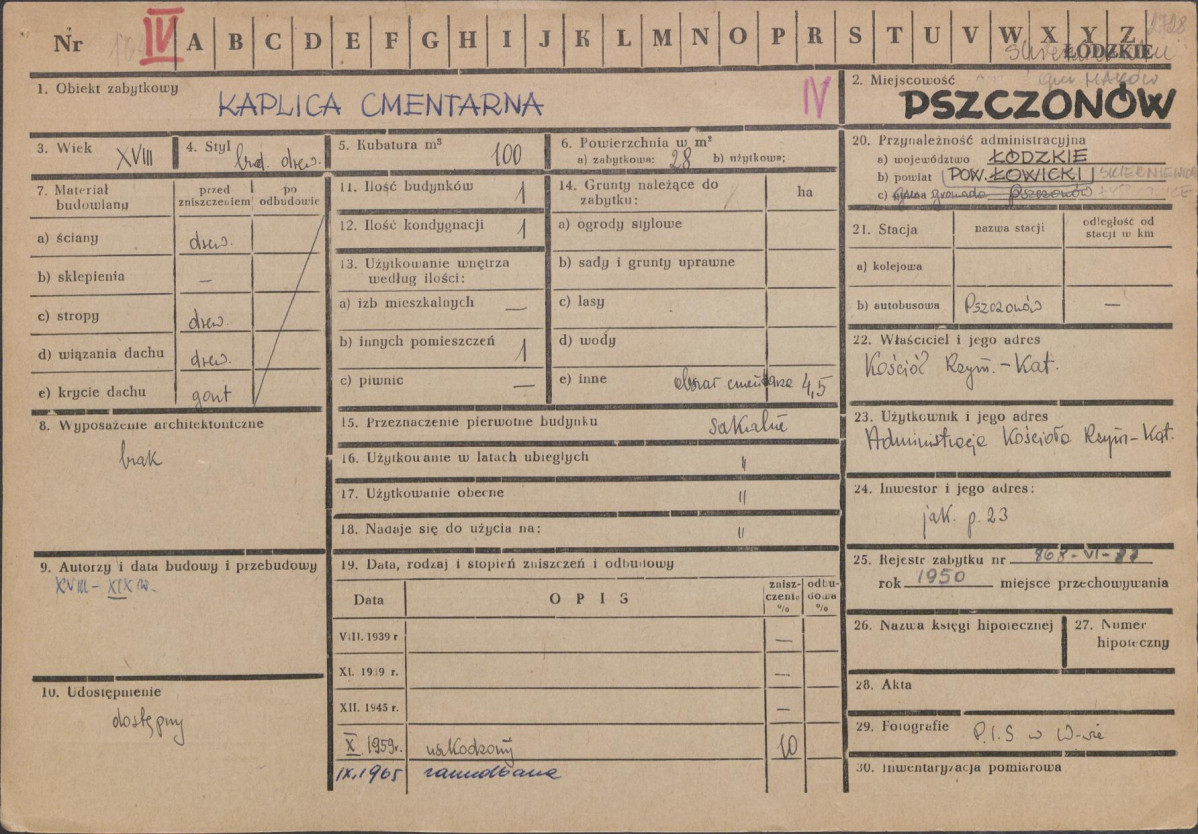 Nr IV A B C D E F G H I J K L M N O P R S T U V W X Y Z
ŁÓDZKIE
gm. MAKÓW
1. Obiekt zabytkowy
KAPLICA CMENTARNA IV
2. Miejscowość
PSZCZONÓW
3. Wiek XVIII
4. Styl drew.
5. Kubatura m³ 100
6. Powierzchnia w m²
a) zabytkowa: 28 b) użytkowa:
7. Materiał budowlany
przed zniszczeniem
po odbudowie
a) ściany drew.
b) sklepienia —
c) stropy drew.
d) wiązania dachu drew.
e) krycie dachu gont
8. Wyposażenie architektoniczne
brak
9. Autorzy i data budowy i przebudowy
XVIII – XIX w.
10. Udostępnienie
dostępny
11. Ilość budynków 1
12. Ilość kondygnacji 1
13. Użytkowanie wnętrza
według ilości:
a) izb mieszkalnych —
b) innych pomieszczeń 1
c) piwnic —
14. Grunty należące do
zabytku:
ha
a) ogrody stylowe
b) sady i grunty uprawne
c) lasy
d) wody
e) inne obszar cmentarza 4,5
15. Przeznaczenie pierwotne budynku sakralne
16. Użytkowanie w latach ubiegłych "
17. Użytkowanie obecne "
18. Nadaje się do użycia na: "
19. Data, rodzaj i stopień zniszczeń i odbudowy
Data
OPIS
zniszczenie %
odbudowa %
VIII. 1939 r —
XI. 1939 r. —
XII. 1945 r. —
X 1959r. uszkodzony 10
IX.1965 zaniedbana
20. Przynależność administracyjna
a) województwo ŁÓDZKIE
b) powiat POW. ŁOWICKI
c) gmina gromada Pszczonów
21. Stacja
nazwa stacji
odległość od
stacji w km
a) kolejowa
b) autobusowa Pszczonów —
22. Właściciel i jego adres
Kościół Rzym.-Kat.
23. Użytkownik i jego adres
Administracja Kościoła Rzym-Kat.
24. Inwestor i jego adres:
jak p. 23
25. Rejestr zabytku nr 868-VI-
rok 1950 miejsce przechowywania
26. Nazwa księgi hipotecznej
27. Numer
hipoteczny
28. Akta
29. Fotografie P.I.S w W-wie
30. Inwentaryzacja pomiarowa